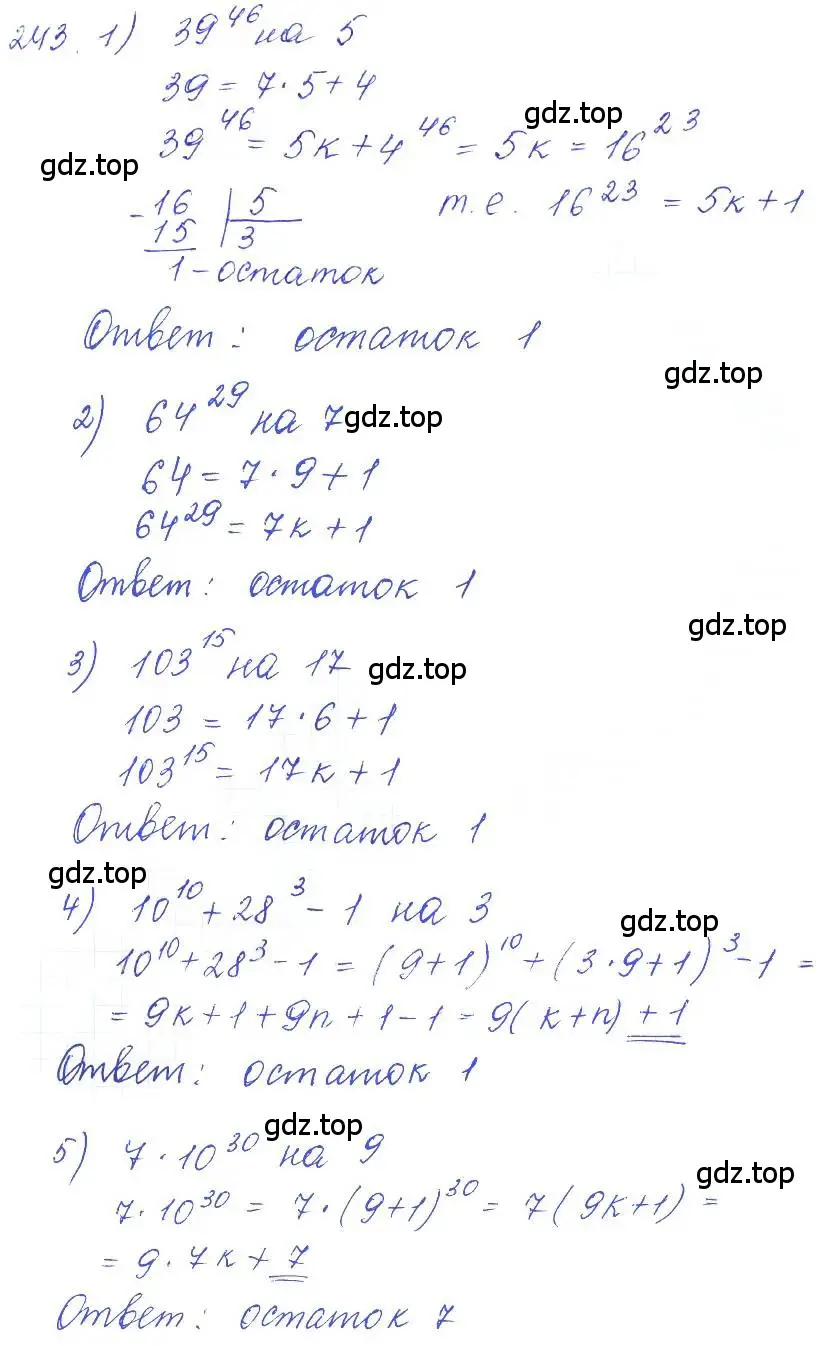 243. 1) 39^46 на 5
39 = 7·5+4
gdz.top
39^46 = 5к+4^46 = 5к = 16^23
gdz.top
-16 | 5 т.е. 16^23 = 5к+1
15 | 3
1 - остаток
Ответ: остаток 1
gdz.top
2) 64^29 на 7
gdz.top
64 = 7·9+1
64^29 = 7к+1
Ответ: остаток 1
gdz.top
3) 103^15 на 17
gdz.top
103 = 17·6+1
103^15 = 17к+1
Ответ: остаток 1
gdz.top
4) 10^10+28^3-1 на 3
gdz.top
10^10+28^3-1 = (9+1)^10+(3·9+1)^3-1 =
= 9к+1+9n+1-1 = 9(к+n)+1
Ответ: остаток 1
gdz.top
5) 7·10^30 на 9
gdz.top
7·10^30 = 7·(9+1)^30 = 7(9к+1) =
= 9·7к+7
Ответ: остаток 7